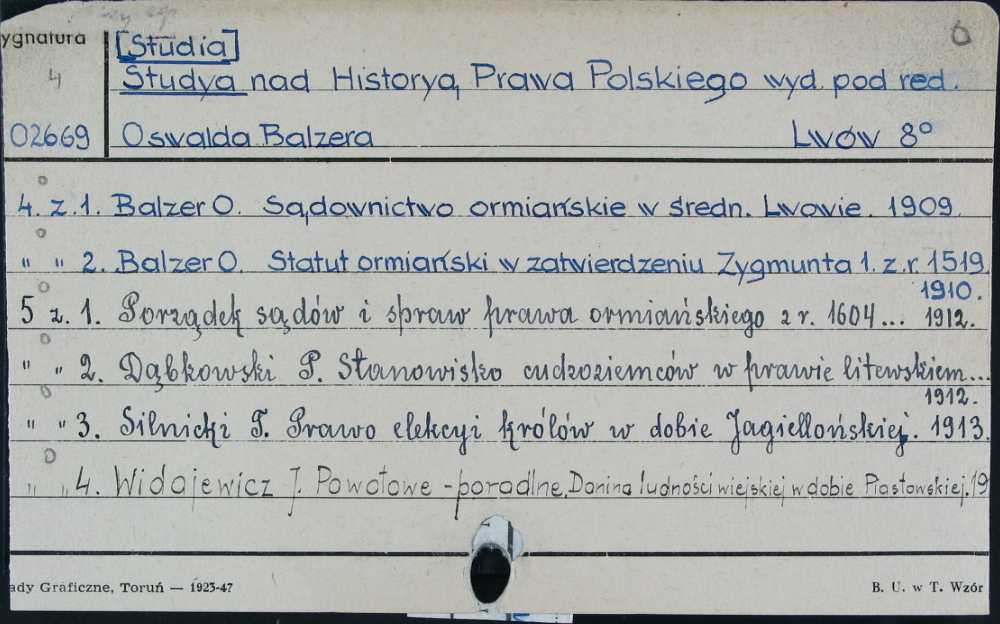 ygnatura
4
02669
[Studia]
Studya nad Historyą Prawa Polskiego wyd. pod red.
Oswalda Balzera Lwów 8°
4. z. 1. Balzer O. Sądownictwo ormiańskie w średn. Lwowie. 1909.
" " 2. Balzer O. Statut ormiański w zatwierdzeniu Zygmunta 1. z. r. 1519.
1910.
5 z. 1. Porządek sądów i spraw prawa ormiańskiego z r. 1604... 1912.
" " 2. Dąbkowski P. Stanowisko cudzoziemców w prawie litewskiem...
1912.
" " 3. Silnicki T. Prawo elekcyi królów w dobie Jagiellońskiej. 1913.
" " 4. Widajewicz J. Powołowe-poradlne. Danina ludności wiejskiej w dobie Piastowskiej. 19
ady Graficzne, Toruń — 1923-47
B. U. w T. Wzór